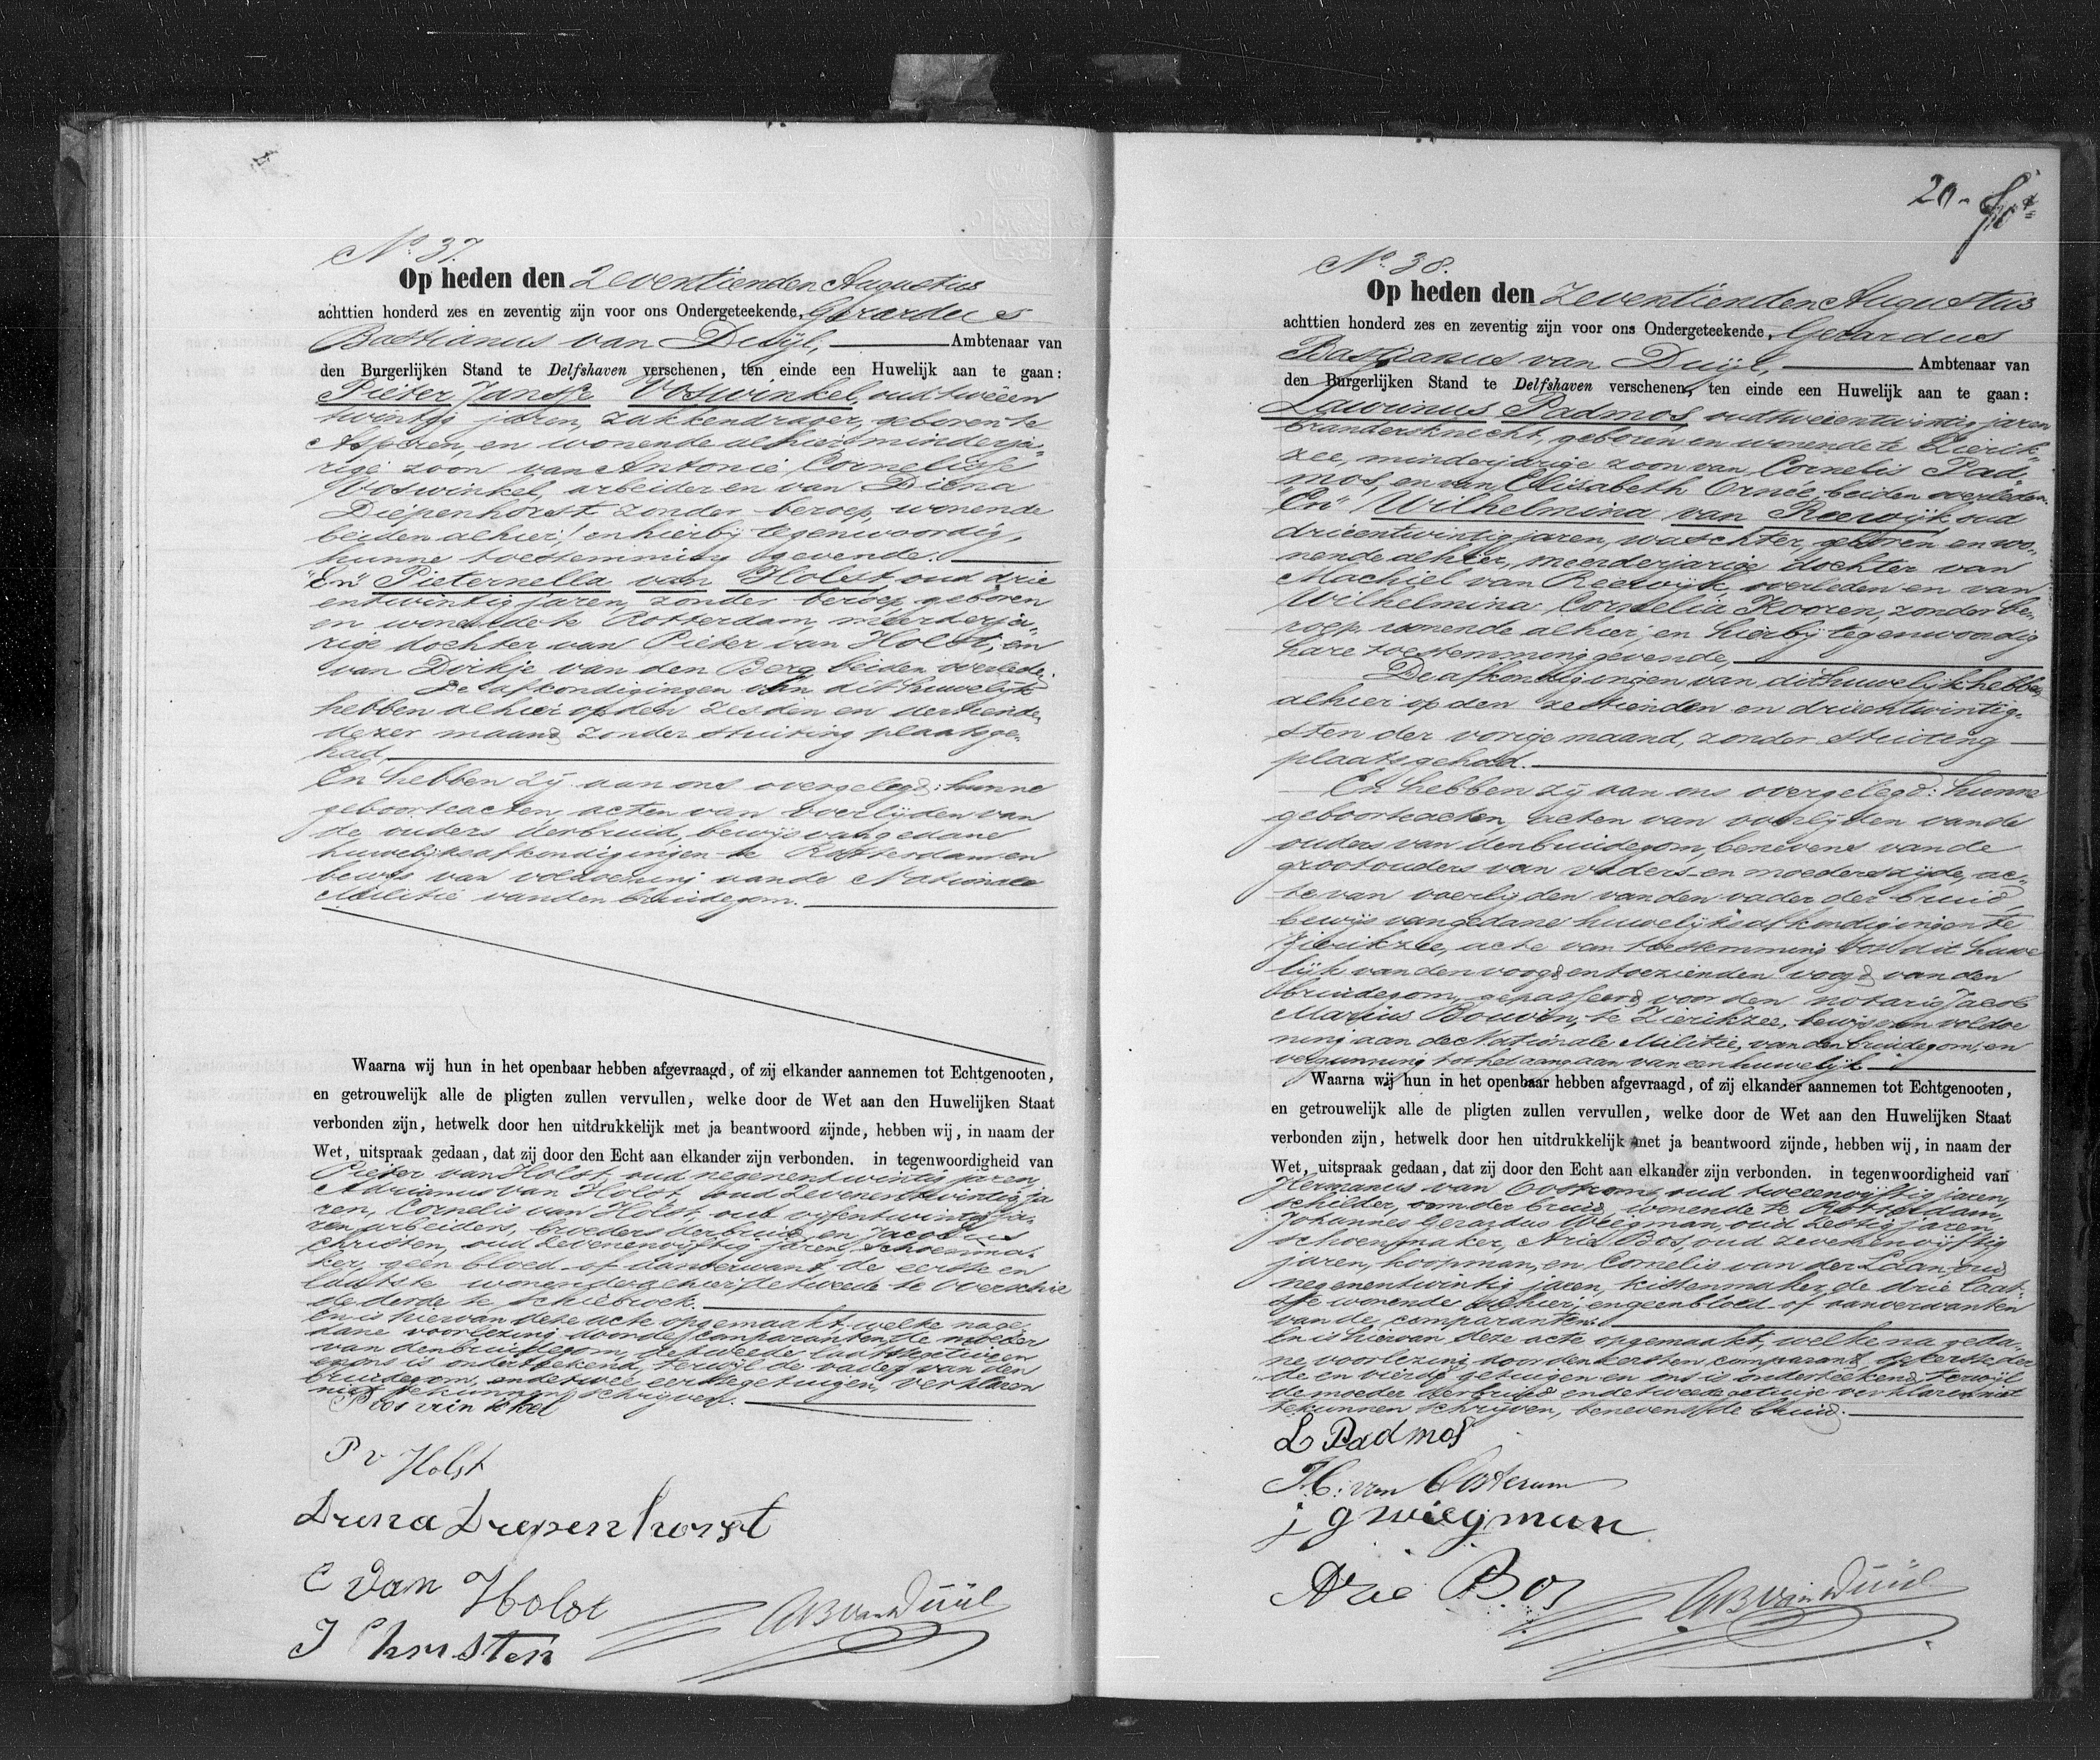 No. 37.
Op heden den zeventienden Augustus
achttien honderd zes en zeventig zijn voor ons Ondergeteekende, Gerardus
Bastianus van Duijl, Ambtenaar van
den Burgerlijken Stand te Delfshaven verschenen, ten einde een Huwelijk aan te gaan:
Pieter Jansje Voswinkel, oud tweeen
twintig jaren, zakkendrager, geboren te
Asperen, en wonende alhier minderja-
rige zoon van Antonie Cornelisse
Voswinkel, arbeider en van Diena
Diepenhorst zonder beroep, wonende
beiden alhier, en hierbij tegenwoordig,
hunne toestemming gevende.
"En" Pieternella van Holst, oud drie
entwintig jaren, zonder beroep, geboren
en wonende te Rotterdam, meerderja-
rige dochter van Pieter van Holst, en
van Dirkje van den Berg beiden overleden.
De afkondigingen van dit huwelijk
hebben alhier op den zesden en dertienden
dezer maand zonder stuiting plaats ge-
had,
En hebben zij aan ons overgelegd: hunne
geboorteacten, acten van overlijden van
de ouders der bruid, bewijs van gedane
huwelijksafkondigingen te Rotterdam en
bewijs van voldoening aan de Nationale
Militie van den bruidegom.
Waarna wij hun in het openbaar hebben afgevraagd, of zij elkander aannemen tot Echtgenooten,
en getrouwelijk alle de pligten zullen vervullen, welke door de Wet aan den Huwelijken Staat
verbonden zijn, hetwelk door hen uitdrukkelijk met ja beantwoord zijnde, hebben wij, in naam der
Wet, uitspraak gedaan, dat zij door den Echt aan elkander zijn verbonden. in tegenwoordigheid van
Pieter van Holst, oud negenentwintig jaren,
Adrianus van Holst, oud zevenentwintig ja
ren, Cornelis van Holst, oud vijfentwintig ja-
ren arbeiders, broeders der bruid, en Jacobus
Christen, oud zevenenvijftig jaren, schoenma-
ker, geen bloed- of aanverwant, de eerste en
laatste wonende alhier, de tweede te Overschie
de derde te Schiebroek.
En is hiervan deze acte opgemaakt, welke na ge
dane voorlezing door de comparanten, de moeder
van den bruidegom, de tweede laatste getuigen
en ons is onderteekend, terwijl de vader van den
bruidegom, en de twee eerste getuigen, verklaren
niet te kunnen schrijven.
P Vos win kkel
P v Holst
Diena Diepenhorst
C van Holst
J Christen
GB van Düül
20.
No. 38.
Op heden den zeventienden Augustus
achttien honderd zes en zeventig zijn voor ons Ondergeteekende, Gerardus
Bastianus van Duijl, Ambtenaar van
den Burgerlijken Stand te Delfshaven verschenen, ten einde een Huwelijk aan te gaan:
Laurinus Padmos, oud tweeentwintig jaren
brandersknecht, geboren en wonende te Zierik-
zee, minderjarige zoon van Cornelis Pad-
mos, en van Elisabeth Ornée, beiden overleden.
"En" Wilhelmina van Reewijk, oud
drieentwintig jaren, waschter, geboren en wo-
nende alhier, meerderjarige dochter van
Machiel van Reewijk, overleden en van
Wilhelmina Cornelia Kooren, zonder be-
roep wonende alhier, en hierbij tegenwoordig
hare toestemming gevende,
De afkondigingen van dit huwelijk hebben
alhier op den zestienden en drieentwintig-
sten der vorige maand, zonder stuiting
plaats gehad.
En hebben zij aan ons overgelegd: hunne
geboorteacten, acten van overlijden van de
ouders van den bruidegom, benevens van de
grootouders van vaders en moeders zijde, ac-
te van overlijden van den vader der bruid,
bewijs van gedane huwelijksafkondigingen te
Zierikzee, acte van toestemming tot dit huwe
lijk van den voogd en toezienden voogd van den
bruidegom, gepasseerd voor den notaris Jacob
Marius Bouvin, te Zierikzee, bewijs van voldoe
ning aan de Nationale Militie, van den bruidegom, en
vergunning tot het aangaan van een huwelijk.
Waarna wij hun in het openbaar hebben afgevraagd, of zij elkander aannemen tot Echtgenooten,
en getrouwelijk alle de pligten zullen vervullen, welke door de Wet aan den Huwelijken Staat
verbonden zijn, hetwelk door hen uitdrukkelijk met ja beantwoord zijnde, hebben wij, in naam der
Wet, uitspraak gedaan, dat zij door den Echt aan elkander zijn verbonden. in tegenwoordigheid van
Hermanus van Oosterom, oud tweeenvijftig jaren,
schilder, oom der bruid, wonende te Rotterdam,
Johannes Gerardus Wiegman, oud zestig jaren,
schoenmaker, Arie Bos, oud zevenenvijftig
jaren, koopman, en Cornelis van der Laan, oud
negenentwintig jaren, kistenmaker, de drie laat-
ste wonende alhier, en geen bloed- of aanverwanten
van de comparanten.
En is hiervan deze acte opgemaakt, welke na geda-
ne voorlezing door den eersten comparant, de eerste der
de en vierde getuigen en ons is onderteekend, terwijl
de moeder der bruid en de tweede getuige verklaren niet
te kunnen schrijven, benevens de bruid.
L Padmos
H: van Oosterum
j g wiegman
Arie Bos
GB van Düül